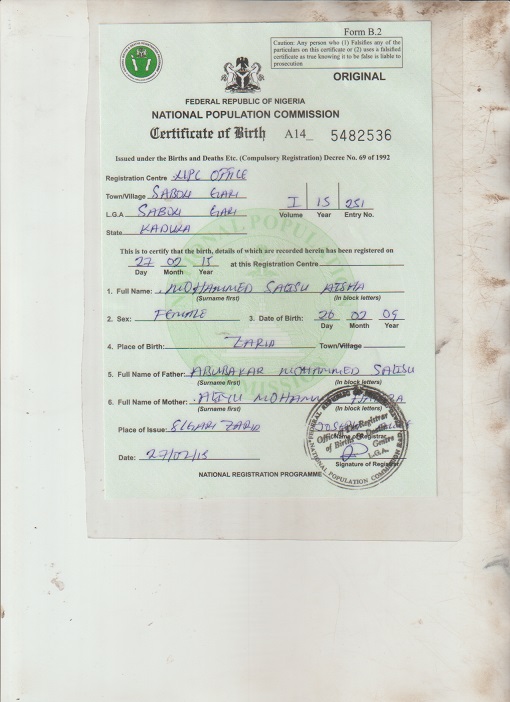 Form B.2
Caution: Any person who (1) Falsifies any of the
particulars on this certificate or (2) uses a falsified
certificate as true knowing it to be false is liable to
prosecution
ORIGINAL
FEDERAL REPUBLIC OF NIGERIA
NATIONAL POPULATION COMMISSION
Certificate of Birth A14_ 5482536
Issued under the Births and Deaths Etc. (Compulsory Registration) Decree No. 69 of 1992
Registration Centre NPC OFFICE
Town/Village SABON GARI
L.G.A SABON GARI
I 15 251
Volume Year Entry No.
State KADUNA
This is to certify that the birth, details of which are recorded herein has been registered on
27 02 15 at this Registration Centre
Day Month Year
1. Full Name: MOHAMMED SALISU AISHA
(Surname first) (In block letters)
2. Sex: FEMALE 3. Date of Birth: 26 02 09
Day Month Year
4. Place of Birth: ZARIA Town/Village
5 Full Name of Father: ABUBAKAR MOHAMMED SALISU
(Surname first) (In block letters)
6. Full Name of Mother: ALIYU
(Surname first) (In block letters)
Place of Issue: S/GARI ZARIA
Name of Registrar
Date: 27/02/15
Signature of Registrar
NATIONAL REGISTRATION PROGRAMME
Official
of Births & Deaths
Centre
L.G.A.
NATIONAL POPULATION COMMISSION